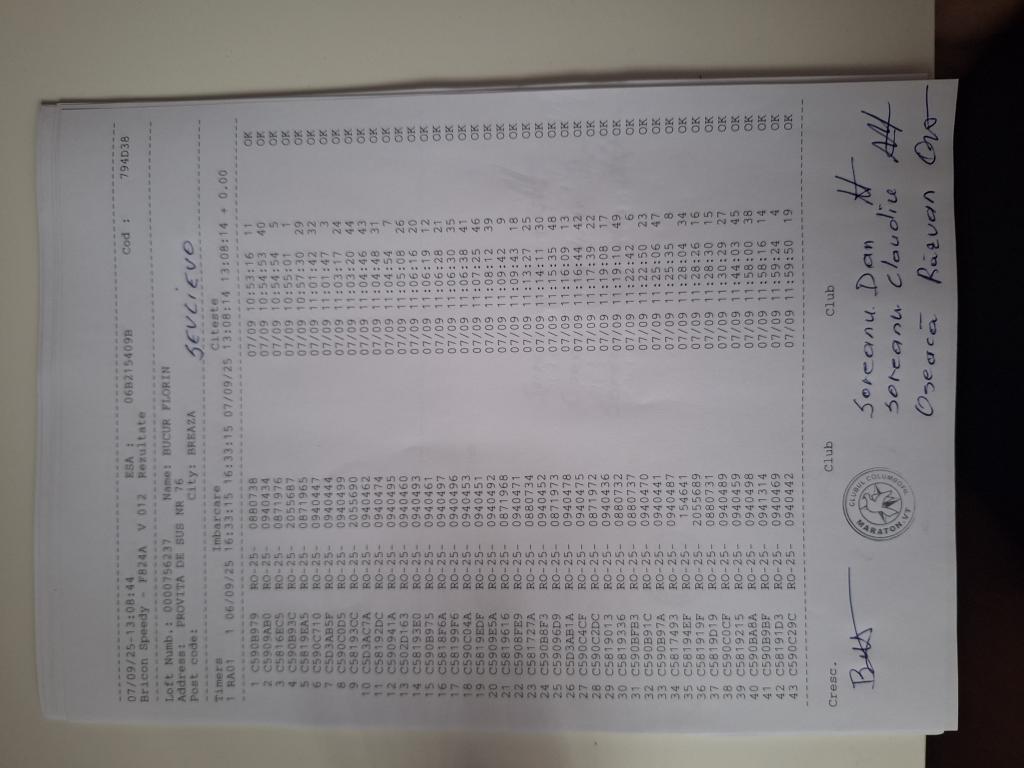 07/09/25-13:08:44 ESA : 06B215409B Cod : 794D38
Bricon Speedy - F824A V 012 Rezultate
Loft Numb.: 0000756237 Name: BUCUR FLORIN
Address: PROVITA DE SUS NR 76
Post code: City: BREAZA
SEVLIEVO
Timers Imbarcare Citeste
1 RA01 1 06/09/25 16:33:15 16:33:15 07/09/25 13:08:14 13:08:14 + 0.00
1 C590B979 RO-25- 0880738 07/09 10:53:16 11 OK
2 C5909AB0 RO-25- 0940434 07/09 10:54:53 40 OK
3 C5816EC5 RO-25- 0871976 07/09 10:54:54 5 OK
4 C590B93C RO-25- 2055687 07/09 10:55:01 1 OK
5 C5819EA5 RO-25- 0871965 07/09 10:57:30 29 OK
6 C590C710 RO-25- 0940447 07/09 11:01:42 32 OK
7 C5D3AB5F RO-25- 0940444 07/09 11:01:47 3 OK
8 C590C0D5 RO-25- 0940499 07/09 11:03:17 24 OK
9 C58193CC RO-25- 2055690 07/09 11:04:20 44 OK
10 C5D3AC7A RO-25- 0940462 07/09 11:04:46 43 OK
11 C58192DC RO-25- 0940474 07/09 11:04:48 31 OK
12 C590941A RO-25- 0940495 07/09 11:04:54 7 OK
13 C502D163 RO-25- 0940460 07/09 11:05:08 26 OK
14 C58193E0 RO-25- 0940493 07/09 11:06:16 20 OK
15 C590B975 RO-25- 0940461 07/09 11:06:19 12 OK
16 C5818F6A RO-25- 0940497 07/09 11:06:28 21 OK
17 C58199F6 RO-25- 0940496 07/09 11:06:30 35 OK
18 C590C04A RO-25- 0940453 07/09 11:06:38 41 OK
19 C5819EDF RO-25- 0940451 07/09 11:07:25 46 OK
20 C5909E5A RO-25- 0940492 07/09 11:08:12 39 OK
21 C5819616 RO-25- 0871968 07/09 11:09:42 9 OK
22 C590BFE9 RO-25- 0940471 07/09 11:09:43 18 OK
23 C581727A RO-25- 0880734 07/09 11:13:27 25 OK
24 C590B8F3 RO-25- 0940452 07/09 11:14:11 30 OK
25 C59096D9 RO-25- 0871973 07/09 11:15:35 48 OK
26 C5D3AB1A RO-25- 0940478 07/09 11:16:09 13 OK
27 C590C4CF RO-25- 0940475 07/09 11:16:44 42 OK
28 C590C2DC RO-25- 0871972 07/09 11:17:39 22 OK
29 C5819013 RO-25- 0940436 07/09 11:19:08 17 OK
30 C5819336 RO-25- 0880732 07/09 11:19:11 49 OK
31 C590BFB3 RO-25- 0880740 07/09 11:22:42 6 OK
32 C590B91C RO-25- 0940470 07/09 11:22:50 23 OK
33 C590B97A RO-25- 0940441 07/09 11:25:06 47 OK
34 C5817493 RO-25- 0940487 07/09 11:25:35 8 OK
RO-25- 154641 07/09 11:28:04 34 OK
RO-25- 2055689 07/09 11:28:26 16 OK
37 C5819D19 RO-25- 0880731 07/09 11:28:30 15 OK
38 C590C0CF RO-25- 0940489 07/09 11:30:29 27 OK
39 C5819215 RO-25- 0940459 07/09 11:44:03 45 OK
40 C590BA8A RO-25- 0940498 07/09 11:58:00 38 OK
41 C590B9BF RO-25- 0941314 07/09 11:58:16 14 OK
42 C58191D3 RO-25- 0940469 07/09 11:59:24 4 OK
43 C590C29C RO-25- 0940442 07/09 11:59:50 19 OK
Cresc. Club Club
CLUBUL COLUMBOFIL
MARATON VT
Soreanu Dan
Soreanu Claudiu
Oseacă Răzvan